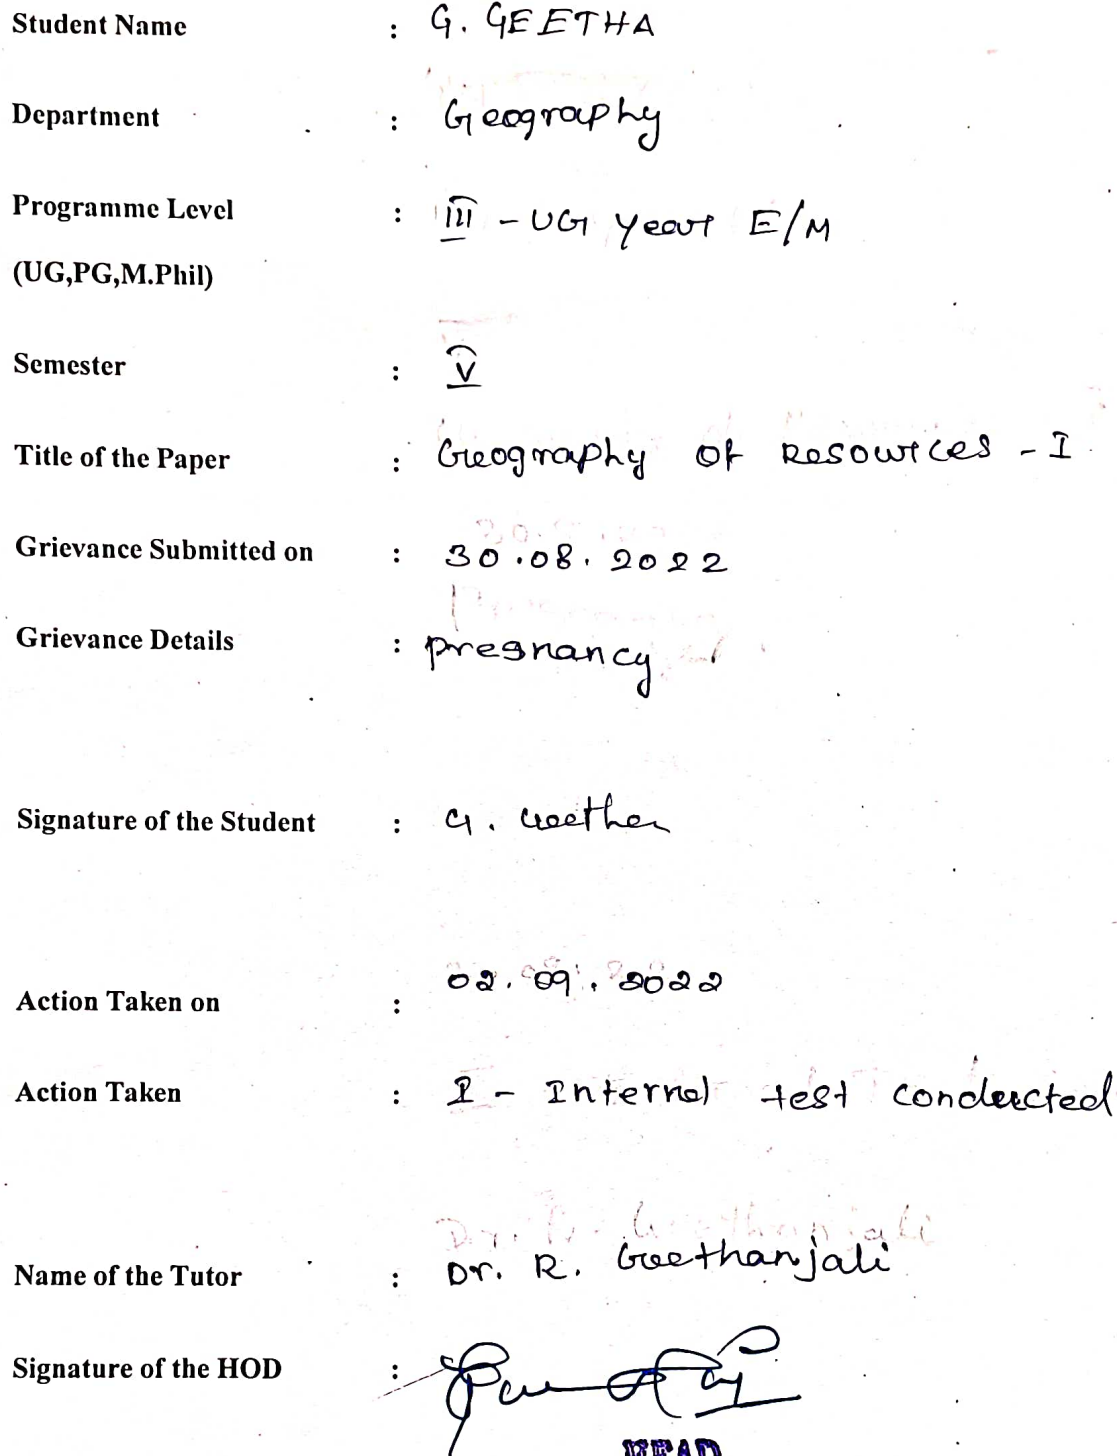 Student Name : G. GEETHA
Department : Geography
Programme Level : III - UG Year E/M
(UG,PG,M.Phil)
Semester : V
Title of the Paper : Geography of Resources - I
Grievance Submitted on : 30.08.2022
Grievance Details : pregnancy
Signature of the Student : G. Geetha
Action Taken on : 02.09.2022
Action Taken : I - Internal test conducted
Name of the Tutor : Dr. R. Geethanjali
Signature of the HOD :
HEAD